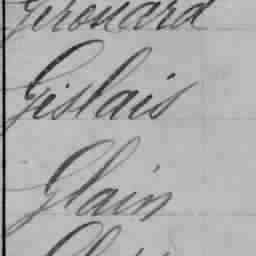 Gerouard
Gislais
Glain